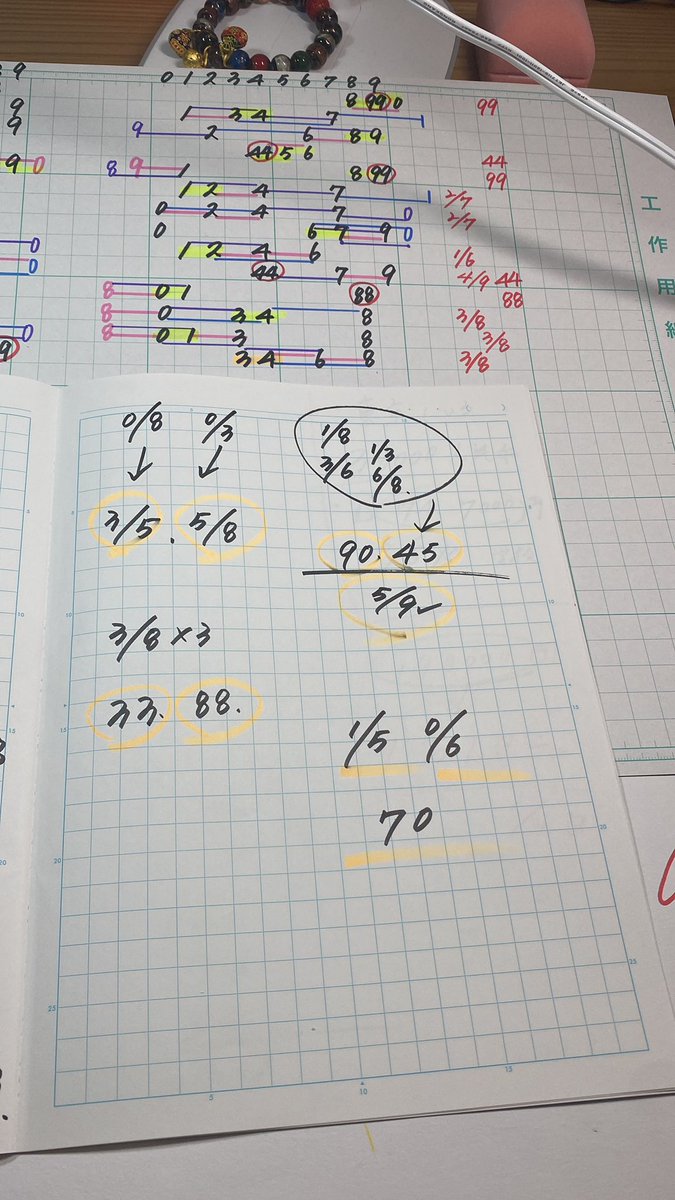 9 0 1 2 3 4 5 6 7 8 9
9 8 99 0 99
9 1 3 4 7 1
9 2 6 8 9
44 5 6 44
9 0 8 9 1 8 99 99
1 2 4 7 1 2/7
0 2 4 7 0 2/7
0 6 7 9 0
0 1 2 4 6 1/6
0 44 7 9 4/9 44
8 0 1 88 88
8 0 3 4 8 3/8
0 8 0 1 3 8 3/8
9 3 4 6 8 3/8
工作用紙
0/8 0/3
3/5. 5/8
3/8 × 3
33. 88.
1/8
3/6 1/3
6/8.
90. 45
5/9✓
1/5 0/6
70
5
10
15
20
25
5
10
15
10
15
20
25
20